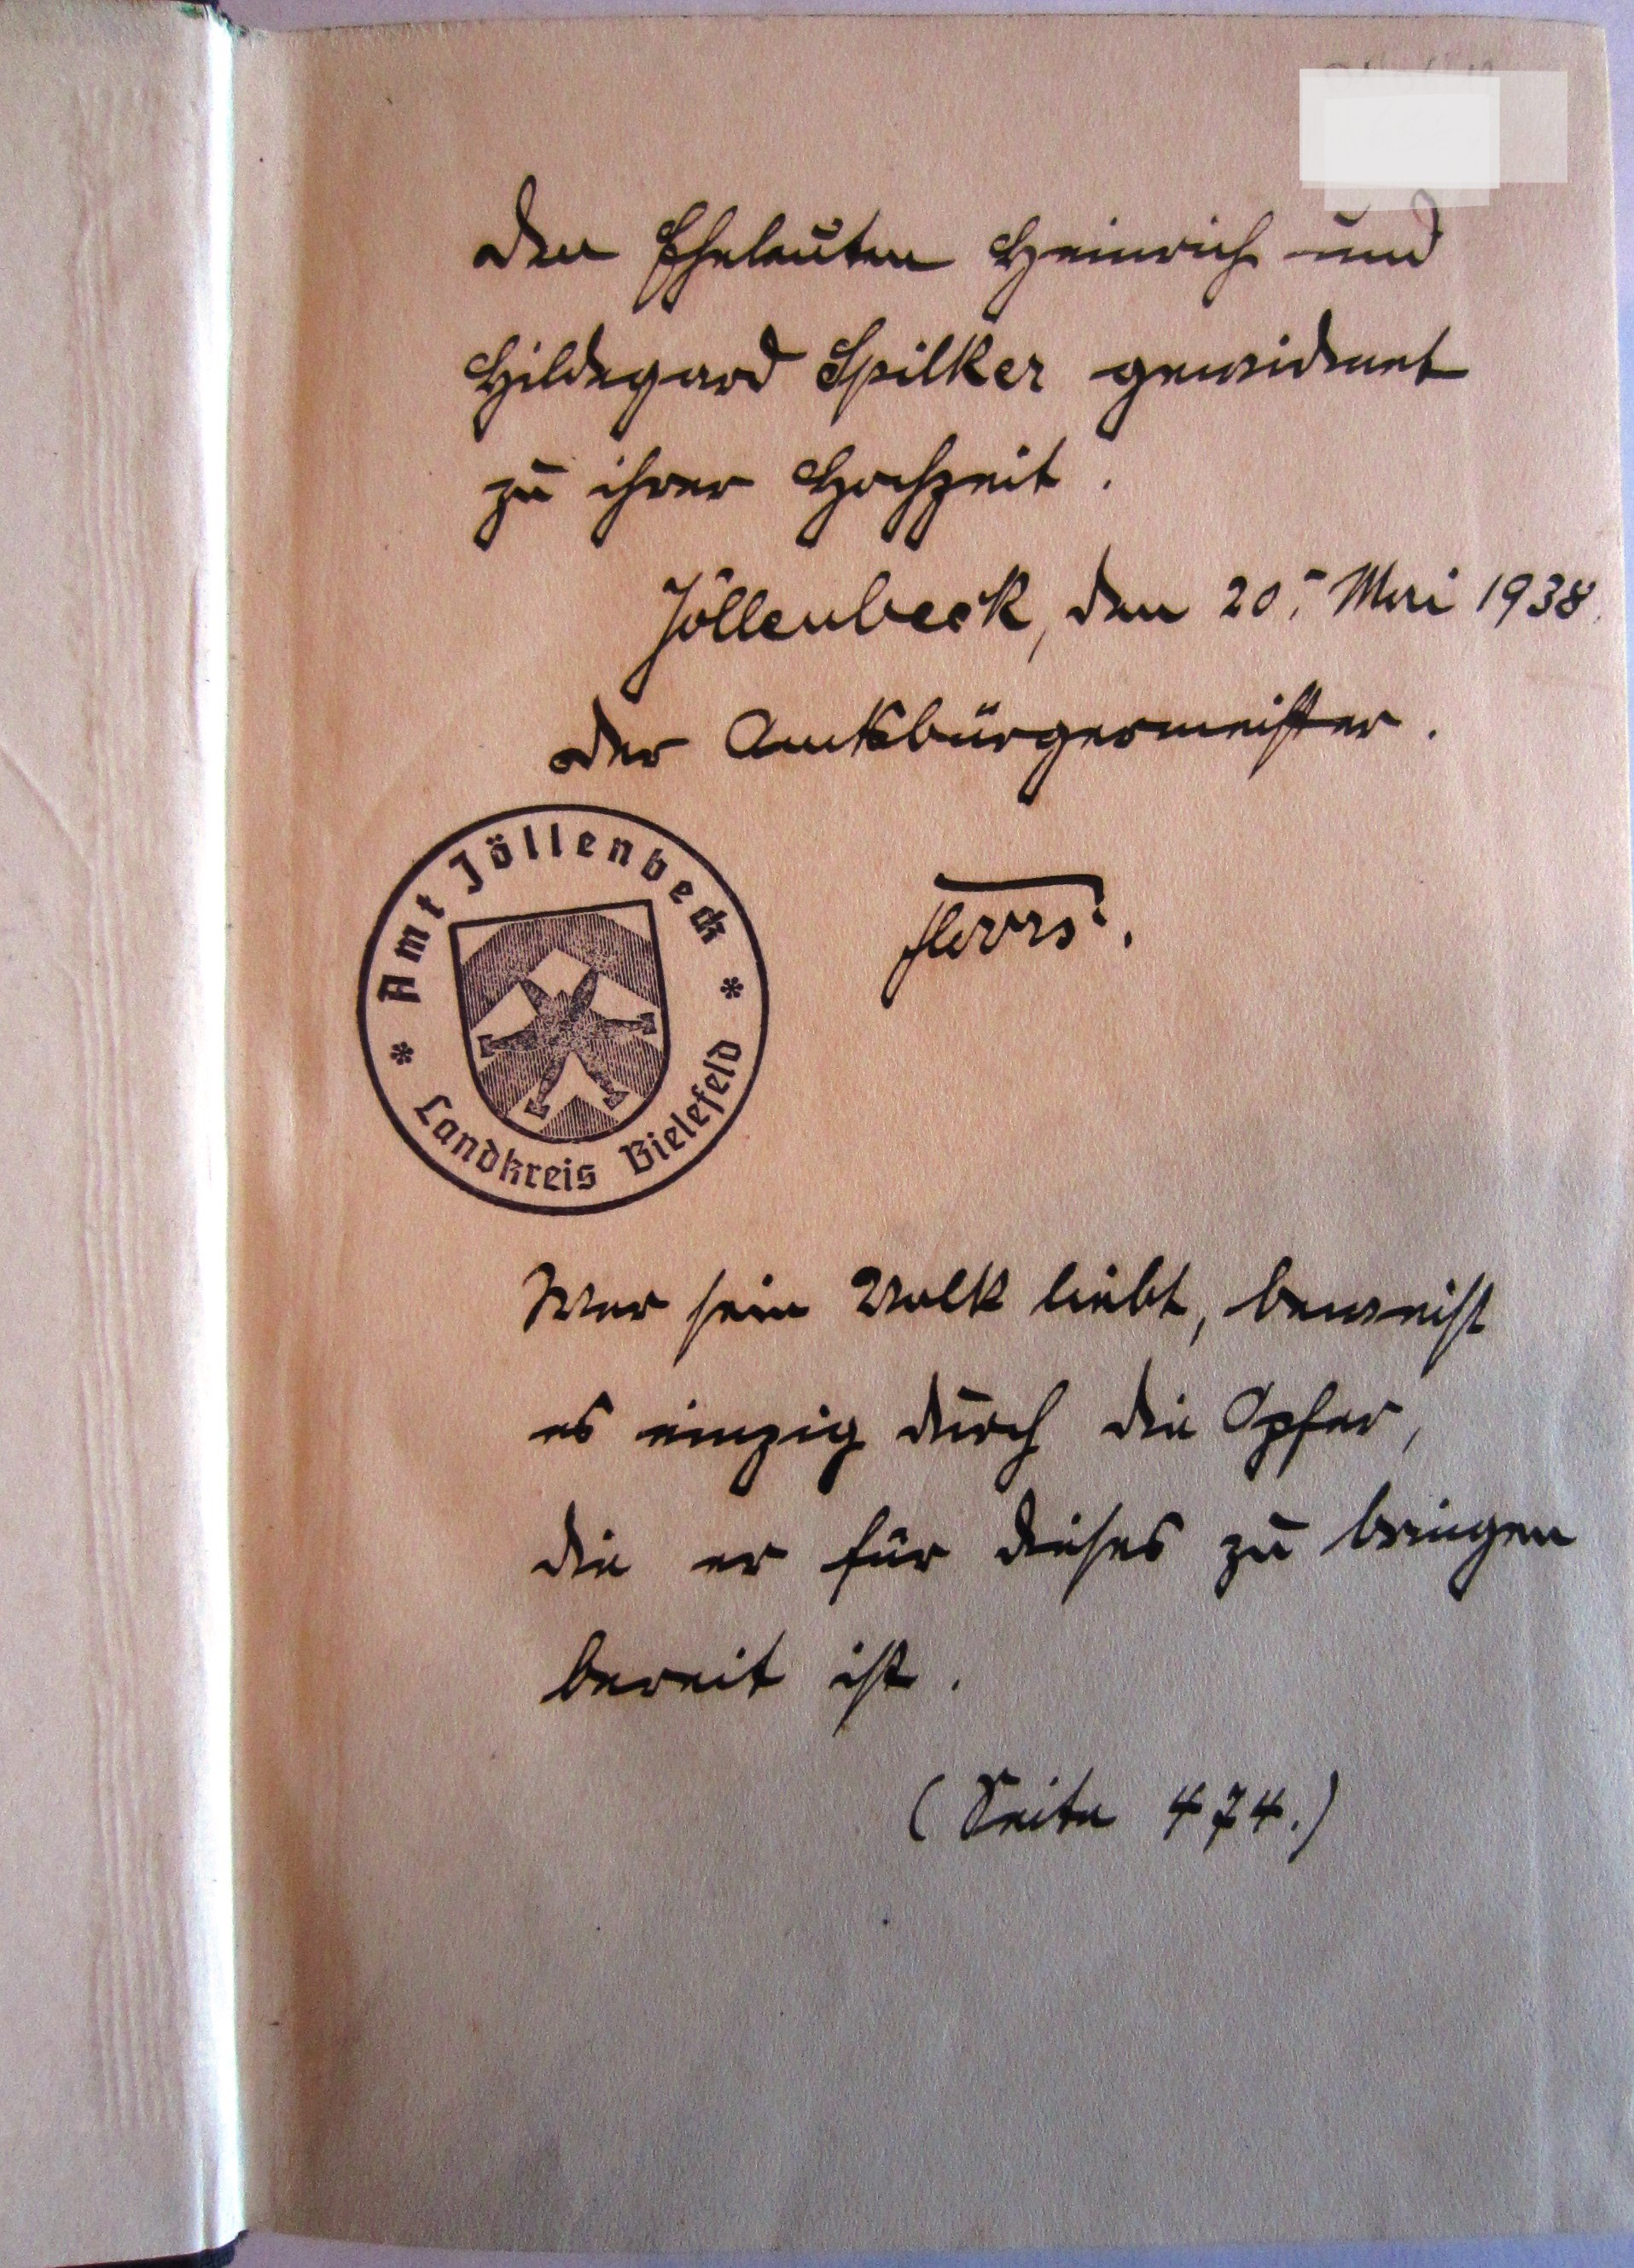 Den Eheleuten Heinrich und
Hildegard Spilker gewidmet
zu ihrer Hochzeit.
Jöllenbeck, den 20. Mai 1938.
Der Amtsbürgermeister.
Amt Jöllenbeck
* *
Landkreis Bielefeld
Wer sein Volk liebt, beweist
es einzig durch die Opfer,
die er für dieses zu bringen
bereit ist.
(Seite 474.)